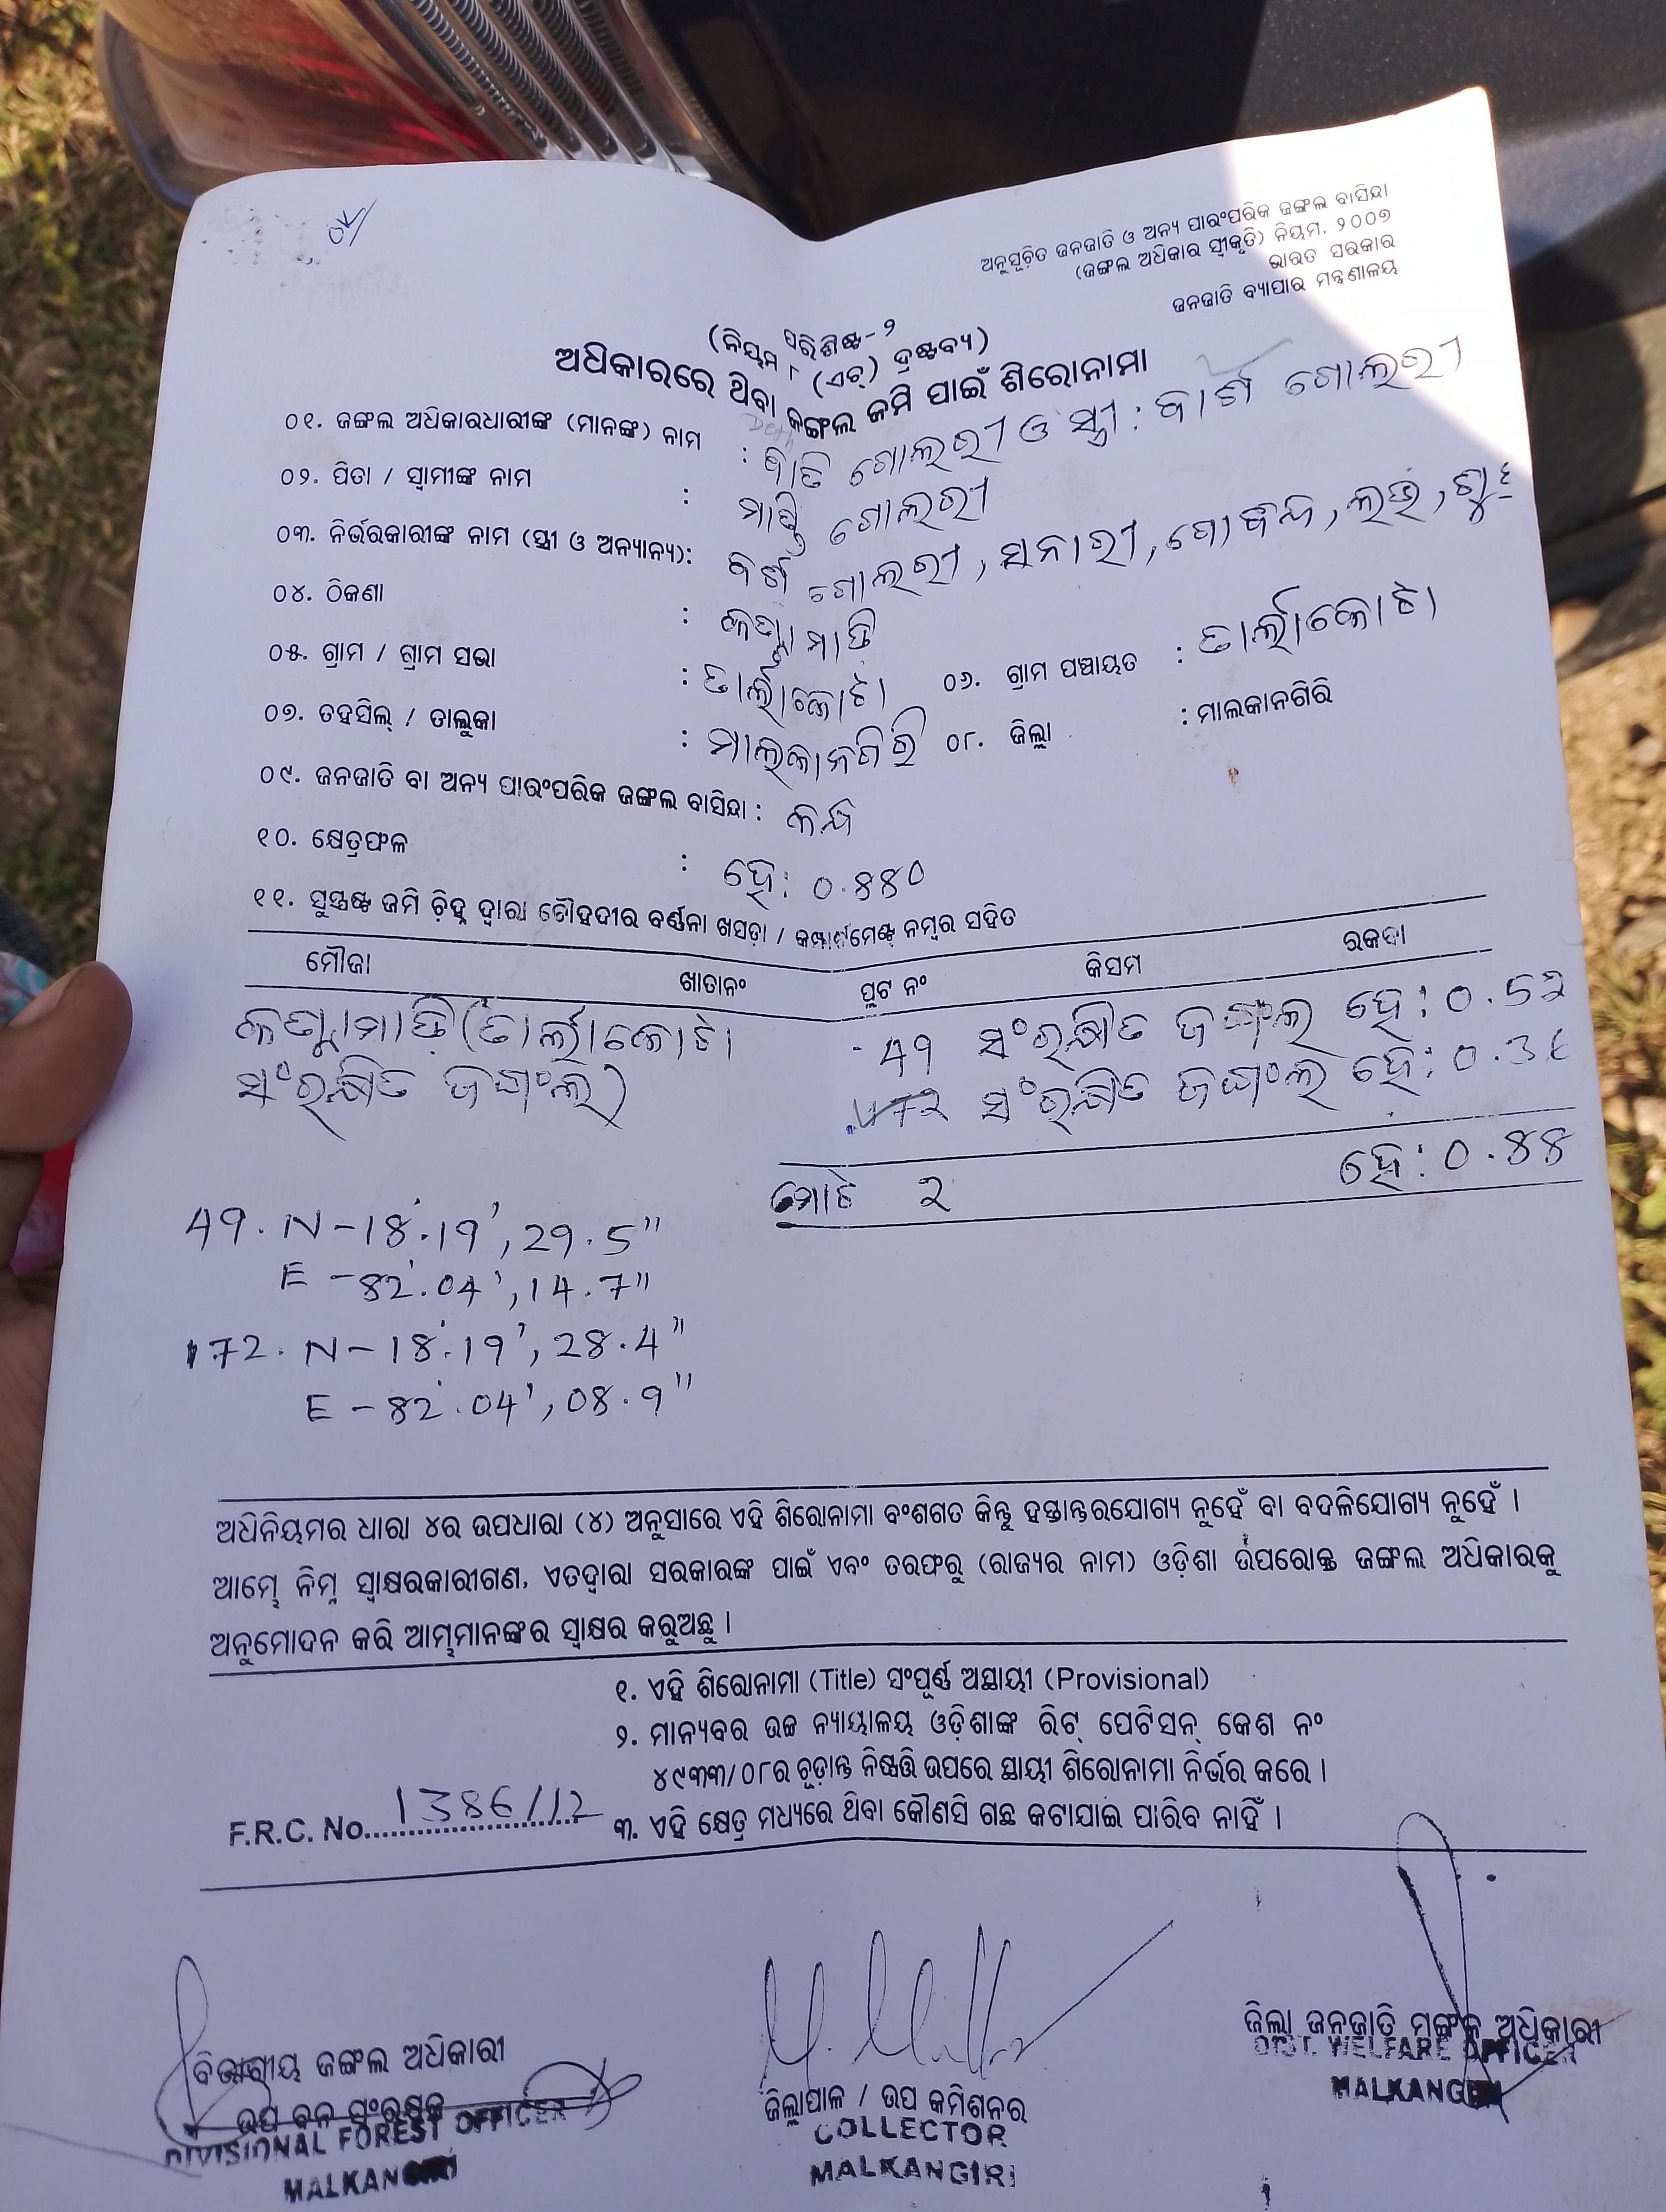 ଅନୁସୂଚିତ ଜନଜାତି ଓ ଅନ୍ୟ ପାରଂପରିକ ଜଙ୍ଗଲ ବାସିନ୍ଦା
(ଜଙ୍ଗଲ ଅଧିକାର ସ୍ୱୀକୃତି) ନିୟମ, ୨୦୦୭
ଭାରତ ସରକାର
ଜନଜାତି ବ୍ୟାପାର ମନ୍ତ୍ରଣାଳୟ
ପରିଶିଷ୍ଟ-୨
(ନିୟମ ୮ (ଏଚ୍) ଦ୍ରଷ୍ଟବ୍ୟ)
ଅଧିକାରରେ ଥିବା ଜଙ୍ଗଲ ଜମି ପାଇଁ ଶିରୋନାମା
୦୧. ଜଙ୍ଗଲ ଅଧିକାରଧାରୀଙ୍କ (ମାନଙ୍କ) ନାମ : ଗୋଲରୀ ଓ ସ୍ତ୍ରୀ: ଗୋଲରୀ
୦୨. ପିତା / ସ୍ୱାମୀଙ୍କ ନାମ : ଗୋଲରୀ
୦୩. ନିର୍ଭରକାରୀଙ୍କ ନାମ (ସ୍ତ୍ରୀ ଓ ଅନ୍ୟାନ୍ୟ): ଗୋଲରୀ, ସନାରୀ, ଗୋବିନ୍ଦ, ଲଭ,
୦୪. ଠିକଣା :
୦୫. ଗ୍ରାମ / ଗ୍ରାମ ସଭା : ତାର୍ଲାକୋଟା ୦୬. ଗ୍ରାମ ପଞ୍ଚାୟତ : ତାର୍ଲାକୋଟା
୦୭. ତହସିଲ୍ / ତାଲୁକା : ମାଲକାନଗିରି ୦୮. ଜିଲ୍ଲା : ମାଲକାନଗିରି
୦୯. ଜନଜାତି ବା ଅନ୍ୟ ପାରଂପରିକ ଜଙ୍ଗଲ ବାସିନ୍ଦା : କନ୍ଧ
୧୦. କ୍ଷେତ୍ରଫଳ : ହେ: ୦.୫୫୦
୧୧. ସୁସ୍ପଷ୍ଟ ଜମି ଚିହ୍ନ ଦ୍ୱାରା ଚୌହଦୀର ବର୍ଣ୍ଣନା ଖସଡ଼ା / କମ୍ପାର୍ଟମେଣ୍ଟ ନମ୍ବର ସହିତ
ମୌଜା ଖାତାନଂ ପ୍ଲଟ ନଂ କିସମ ରକବା
(ତାର୍ଲାକୋଟା 49 ସଂରକ୍ଷିତ ଜଙ୍ଗଲ ହେ:
ସଂରକ୍ଷିତ ଜଙ୍ଗଲ) 172 ସଂରକ୍ଷିତ ଜଙ୍ଗଲ ହେ:
ମୋଟ 2 ହେ:
49. N-18°.19', 29.5"
E-82°.04', 14.7"
172. N-18°.19', 28.4"
E-82°.04', 08.9"
ଅଧିନିୟମର ଧାରା ୪ର ଉପଧାରା (୪) ଅନୁସାରେ ଏହି ଶିରୋନାମା ବଂଶଗତ କିନ୍ତୁ ହସ୍ତାନ୍ତରଯୋଗ୍ୟ ନୁହେଁ ବା ବଦଳିଯୋଗ୍ୟ ନୁହେଁ ।
ଆମ୍ଭେ ନିମ୍ନ ସ୍ୱାକ୍ଷରକାରୀଗଣ, ଏତଦ୍ଦ୍ୱାରା ସରକାରଙ୍କ ପାଇଁ ଏବଂ ତରଫରୁ (ରାଜ୍ୟର ନାମ) ଓଡ଼ିଶା ଉପରୋକ୍ତ ଜଙ୍ଗଲ ଅଧିକାରକୁ
ଅନୁମୋଦନ କରି ଆମ୍ଭମାନଙ୍କର ସ୍ୱାକ୍ଷର କରୁଅଛୁ ।
୧. ଏହି ଶିରୋନାମା (Title) ସଂପୂର୍ଣ୍ଣ ଅସ୍ଥାୟୀ (Provisional)
୨. ମାନ୍ୟବର ଉଚ୍ଚ ନ୍ୟାୟାଳୟ ଓଡ଼ିଶାଙ୍କ ରିଟ୍ ପେଟିସନ୍ କେଶ ନଂ
୪୯୩୩/୦୮ର ଚୂଡ଼ାନ୍ତ ନିଷ୍ପତ୍ତି ଉପରେ ସ୍ଥାୟୀ ଶିରୋନାମା ନିର୍ଭର କରେ ।
F.R.C. No. 1386/12 ୩. ଏହି କ୍ଷେତ୍ର ମଧ୍ୟରେ ଥିବା କୌଣସି ଗଛ କଟାଯାଇ ପାରିବ ନାହିଁ ।
ବିଭାଗୀୟ ଜଙ୍ଗଲ ଅଧିକାରୀ
ଉପ ବନ ସଂରକ୍ଷକ
DIVISIONAL FOREST OFFICER
MALKANGIRI
ଜିଲ୍ଲାପାଳ / ଉପ କମିଶନର
COLLECTOR
MALKANGIRI
ଜିଲ୍ଲା ଜନଜାତି ମଙ୍ଗଳ ଅଧିକାରୀ
DIST. WELFARE OFFICER
MALKANGIRI